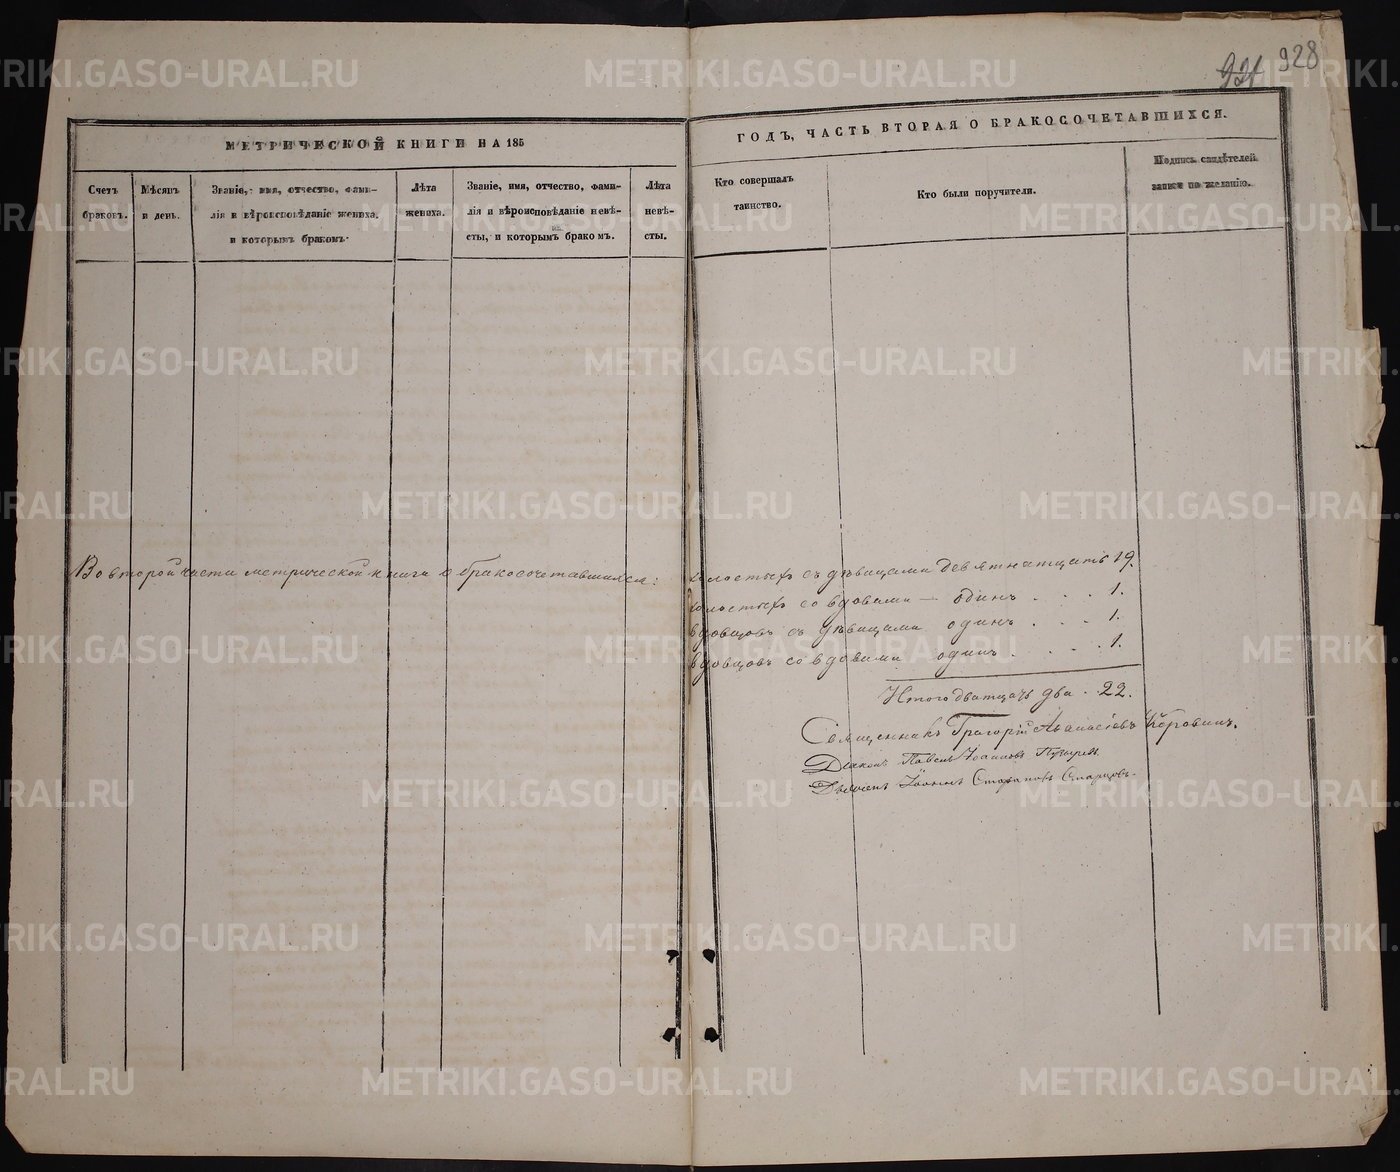 928
МЕТРИЧЕСКОЙ КНИГИ НА 185
ГОДЪ, ЧАСТЬ ВТОРАЯ О БРАКОСОЧЕТАВШИХСЯ.
Счетъ
браковъ.
Мѣсяцъ
и день.
Званіе, имя, отчество, фами-
лія и вѣроисповѣданіе жениха,
и которымъ бракомъ.
Лѣта
жениха.
Званіе, имя, отчество, фами-
лія и вѣроисповѣданіе невѣ-
сты, и которымъ бракомъ.
Лѣта
невѣ-
сты.
Кто совершалъ
таинство.
Кто были поручители.
Подпись свидѣтелей
записи по желанію.
Во второй части метрической книги о бракосочетавшихся: холостыхъ съ дѣвицами девятнатцать 19.
холостыхъ со вдовами — одинъ . . . 1.
вдовцовъ съ дѣвицами одинъ . . . 1.
вдовцовъ со вдовами одинъ . . . . 1.
Итого дватцать два . 22.
Священникъ Григорій Аѳанасіевъ
Діаконъ Павелъ Іоанновъ
Дьячекъ Іоаннъ Старцовъ.
METRIKI.GASO-URAL.RU